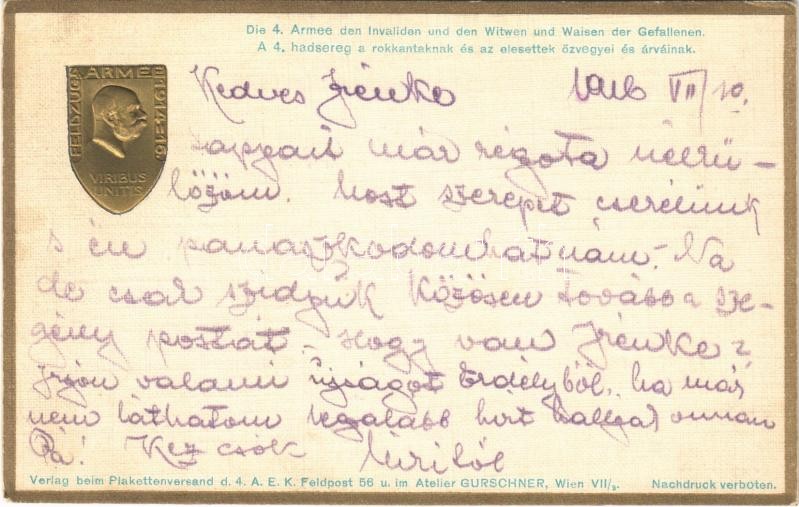 Die 4. Armee den Invaliden und den Witwen und Waisen der Gefallenen.
A 4. hadsereg a rokkantaknak és az elesettek özvegyei és árváinak.
FELDZUG ARMEE 1914-16
VIRIBUS
UNITIS
Kedves Irénke 1916 VII/10.
Lapjait már régóta nélkü-
lözöm. Most szerepet cserélünk
s én panaszkodomhatnám. Na
de csak szidjuk közösen tovább a sze-
gény postát. Hogy van Irénke?
Irjon valami újságot Erdélyből, ha már
nem láthatom legalább hírt halljak onnan
Pá! Kéz csók
Verlag beim Plakettenversand d. 4. A. E. K. Feldpost 56 u. im Atelier GURSCHNER, Wien VII/2. Nachdruck verboten.